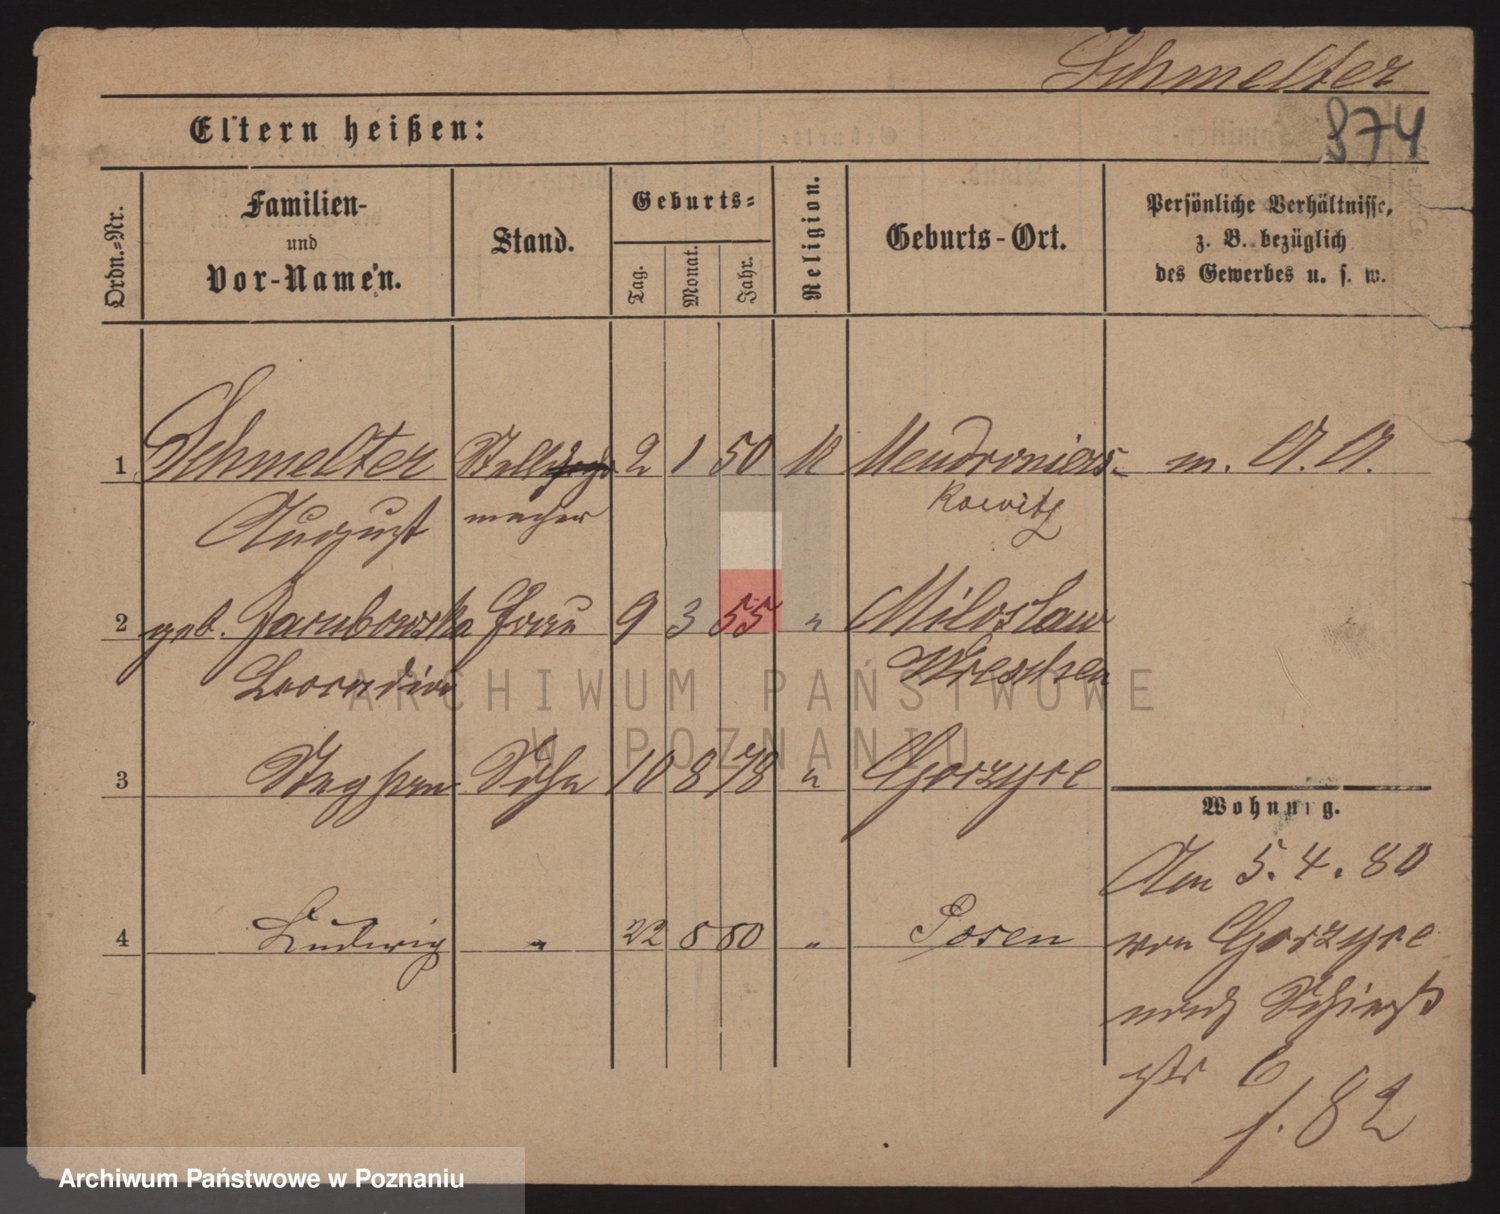 Schmelter
874
Eltern heißen:
Ordn.=Nr.
Familien-
und
Vor-Namen.
Stand.
Geburts=
Tag.
Monat.
Jahr.
Religion.
Geburts-Ort.
Persönliche Verhältnisse,
z. B. bezüglich
des Gewerbes u. s. w.
1 Schmelter Stell 2 1 50 K m. A. A.
August macher
2 geb. Frau 9 3 55 " Miloslaw
Leocadia Wreschen
3 Stephan Sohn 10 8 78 " Gorzyce
Wohnung.
Am 5. 4. 80
4 Ludwig " 22 8 80 " Posen
von Gorzyce
nach
f. 82
ARCHIWUM PAŃSTWOWE
W POZNANIU
Archiwum Państwowe w Poznaniu